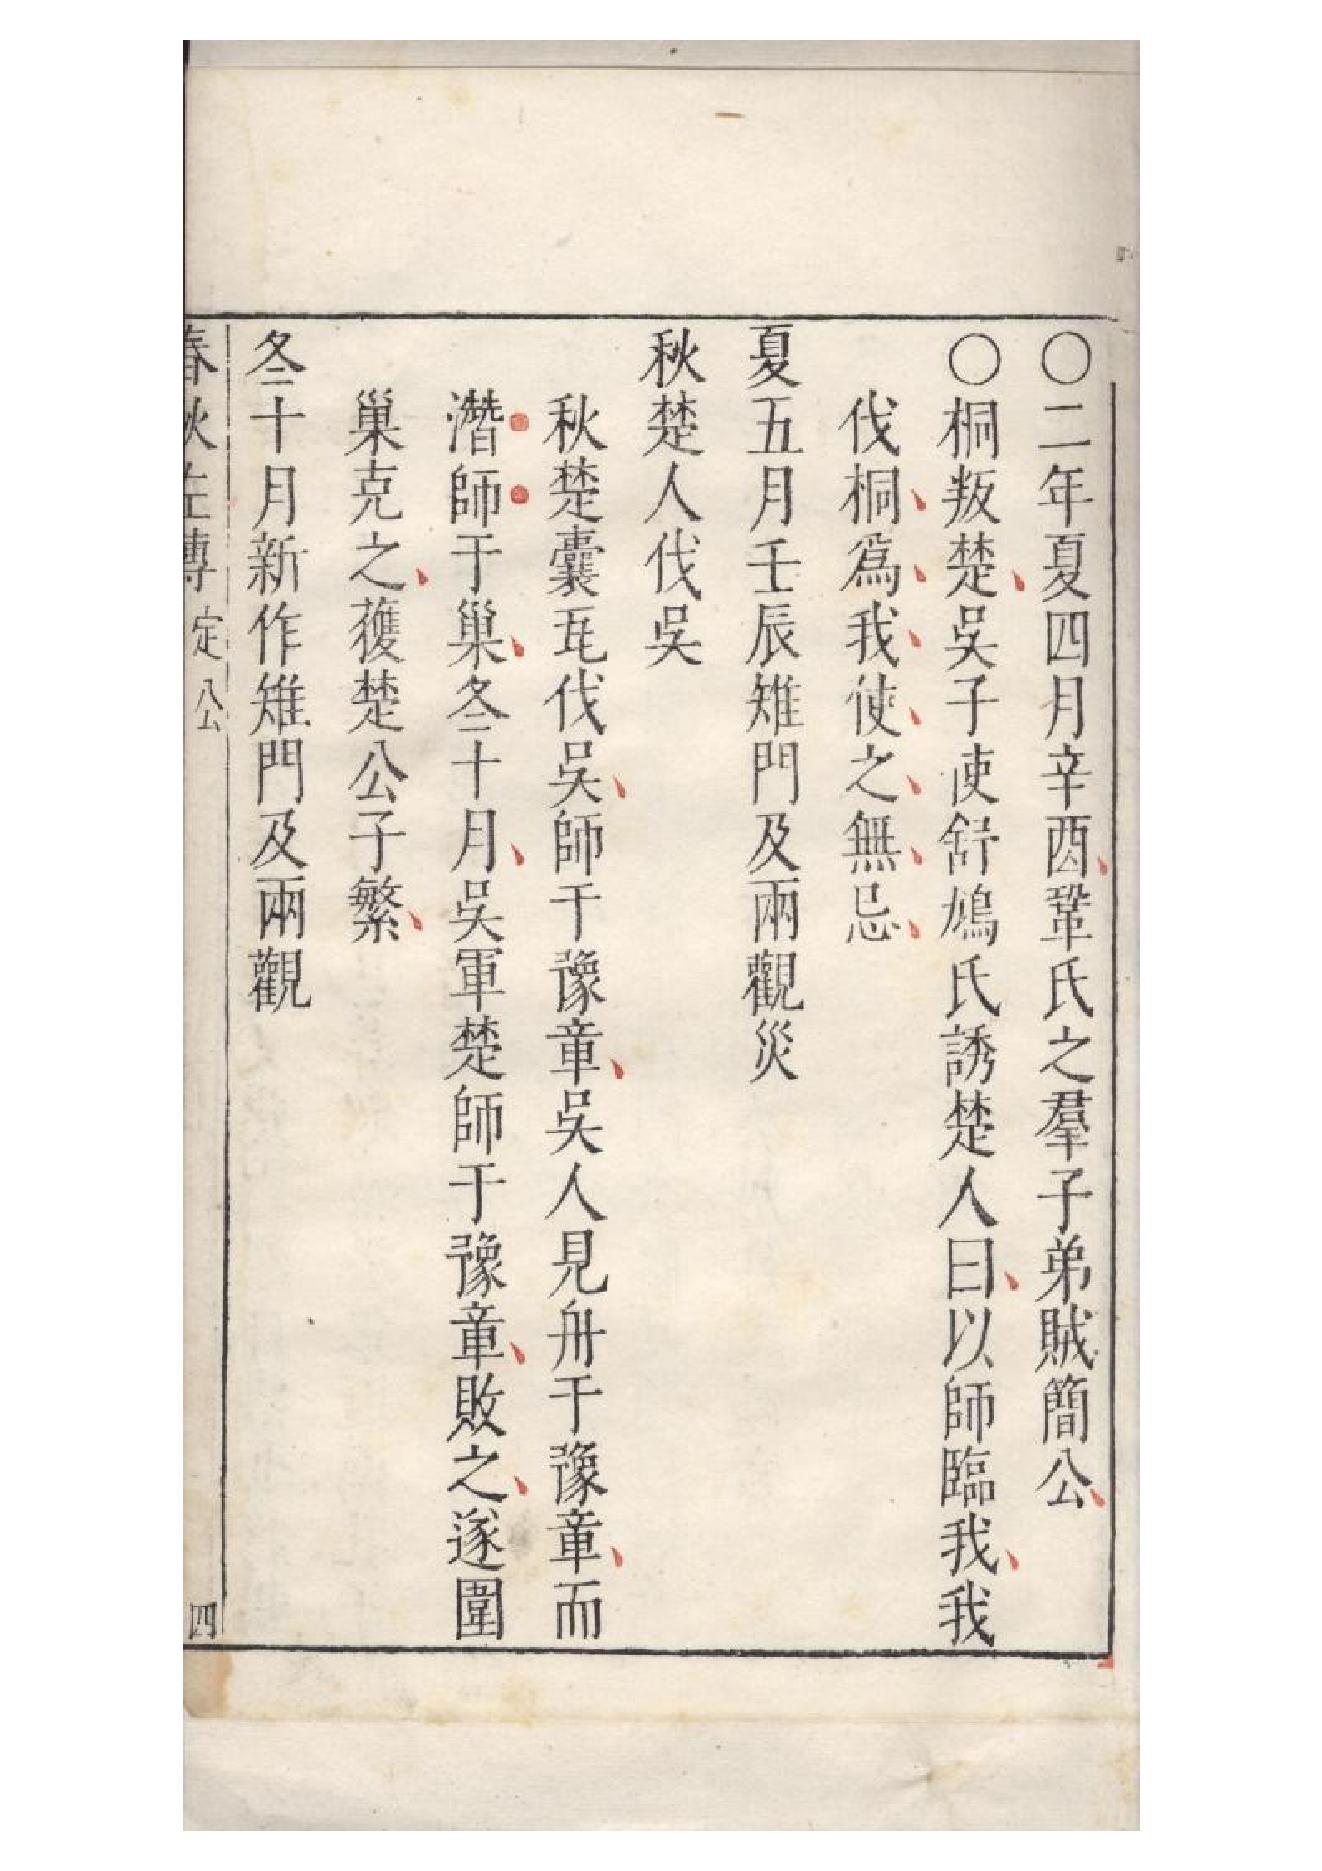 〇二年夏四月辛酉鞏氏之羣子弟賊簡公
〇桐叛楚吳子使舒鳩氏誘楚人曰以師臨我我
伐桐爲我使之無忌
夏五月壬辰雉門及兩觀災
秋楚人伐吳
秋楚囊瓦伐吳師于豫章吳人見舟于豫章而
潛師于巢冬十月吳軍楚師于豫章敗之遂圍
巢克之獲楚公子繁
冬十月新作雉門及兩觀
春秋左傳 定公 四